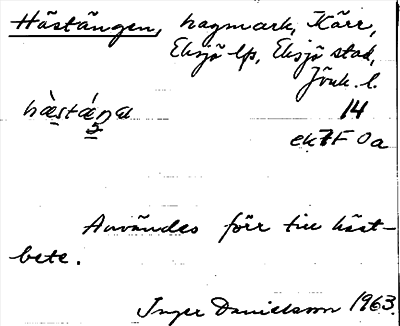 Hästängen, hagmark, Kärr,
Eksjö lfs, Eksjö stad,
Jönk. l.
14
ek7F 0a
Användes förr till häst-
bete.
Inger Danielsson 1963.